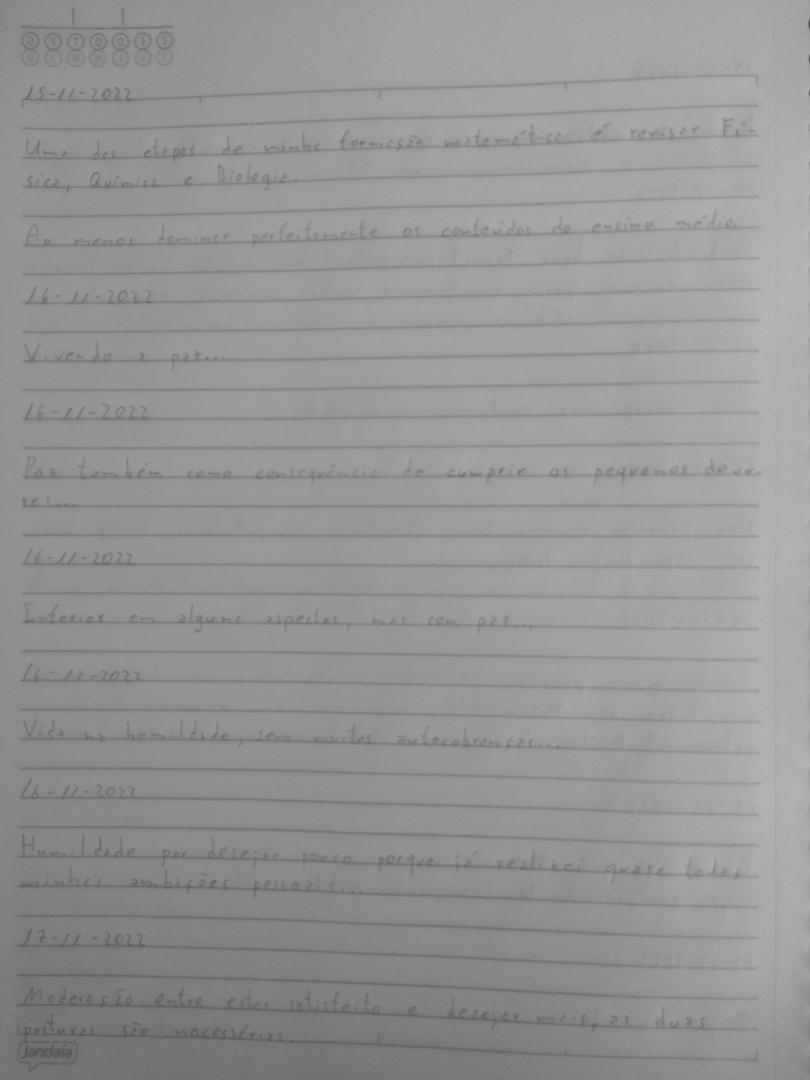 D S T Q Q S S
D L M M J V S
15-11-2022
Uma das etapas de minha formação matemática é revisar Fí-
sica, Química e Biologia.
Ao menos dominar perfeitamente os conteúdos do ensino médio.
16-11-2022
Vivendo a paz...
16-11-2022
Paz também como consequência de cumprir os pequenos deve-
res...
16-11-2022
Inferior em alguns aspectos, mas com paz...
16-11-2022
Vida na humildade, sem muitas autocobranças...
16-11-2022
Humildade por desejar pouco porque já realizei quase todas
minhas ambições pessoais...
17-11-2022
Moderação entre estar satisfeito e desejar mais, as duas
posturas são necessárias.
jandaia